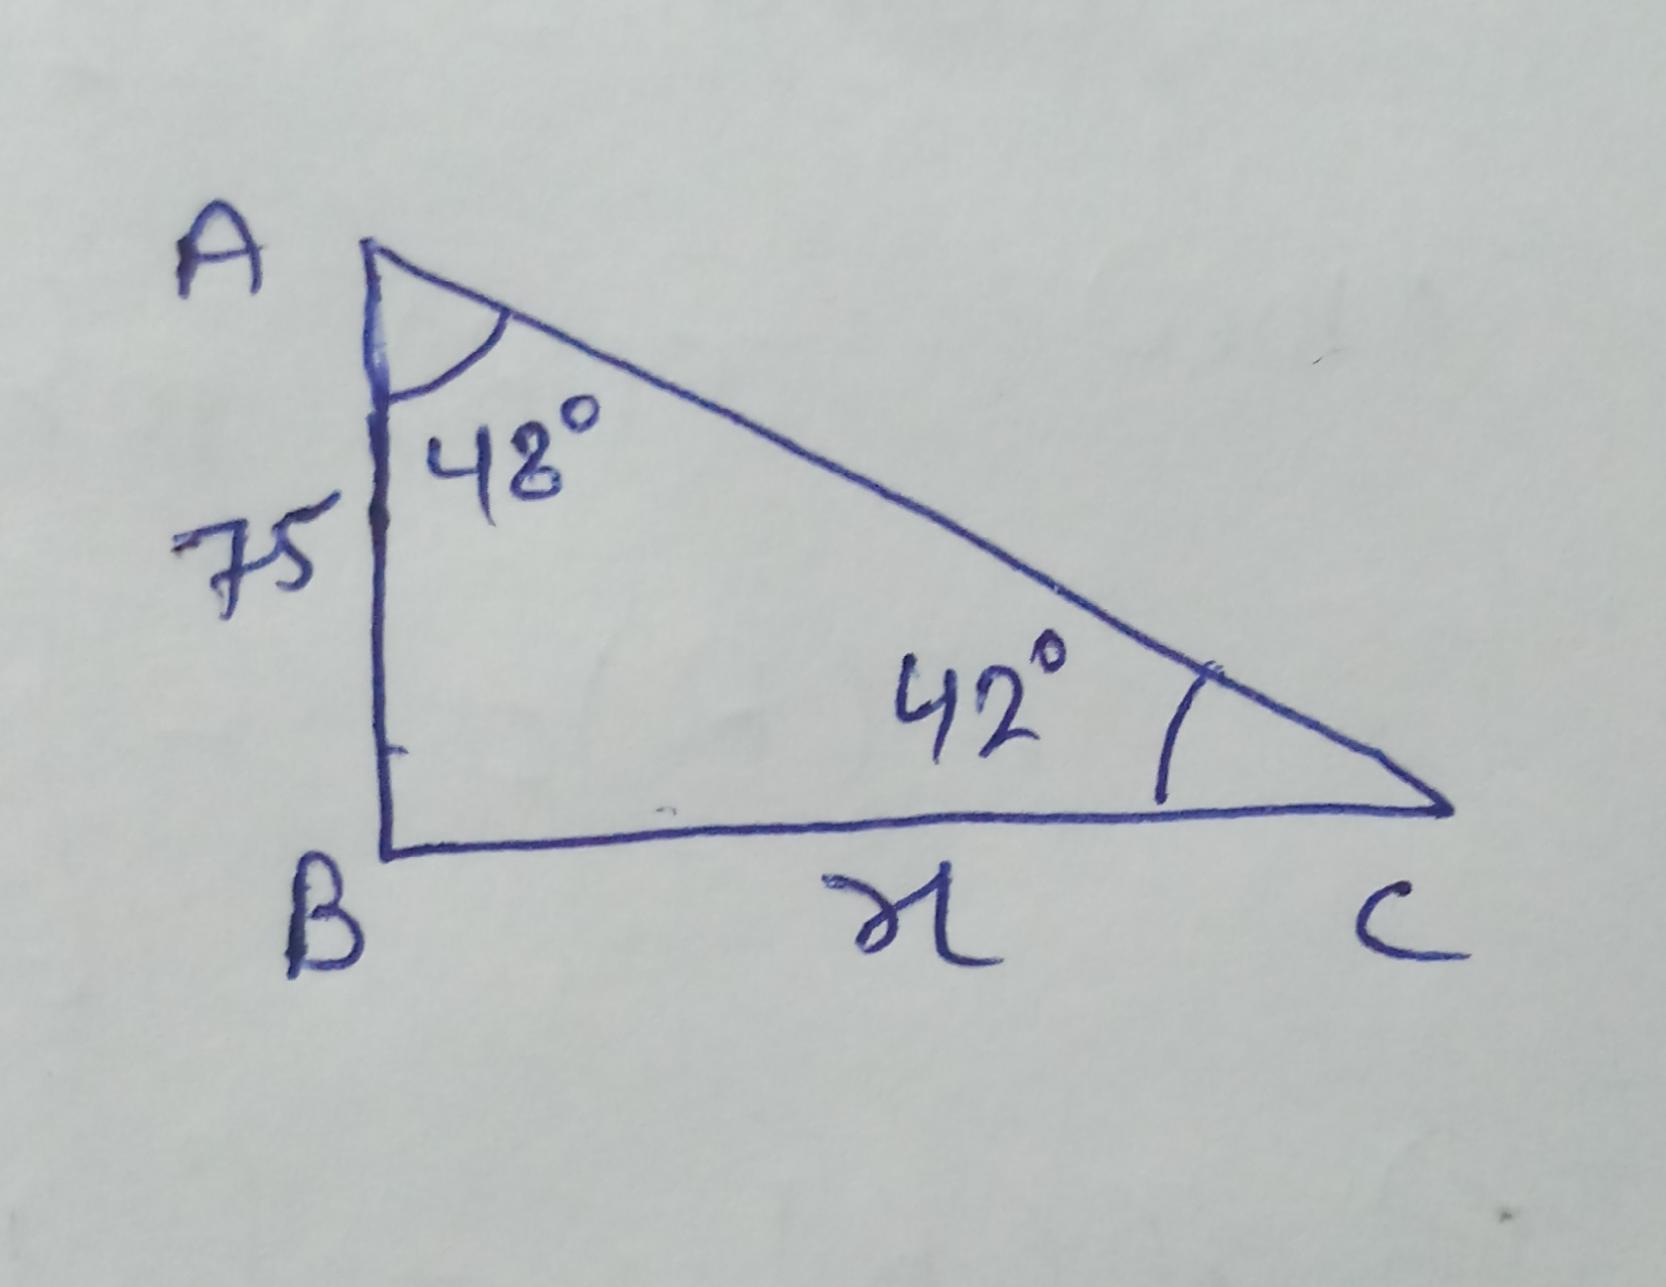 A
48°
75
42°
B
x
C